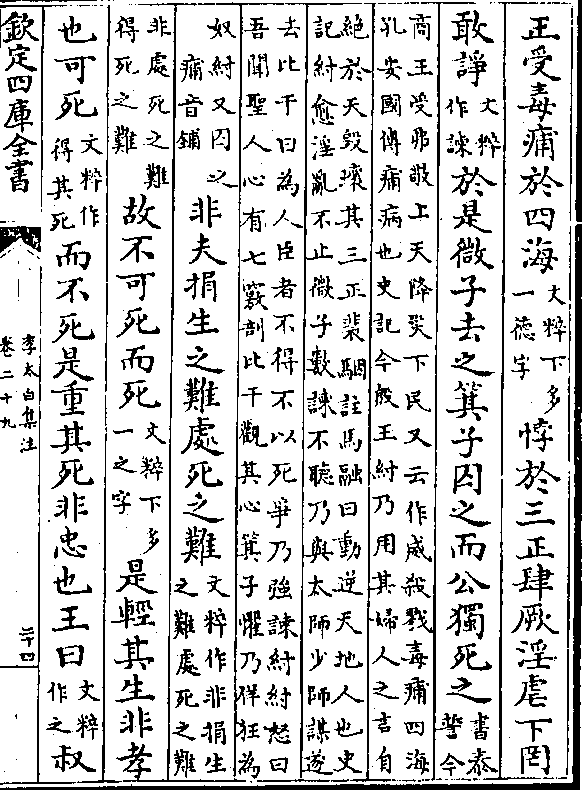 正受毒痡於四海文粹下多一徳字悖於三正肆厥淫虐下罔
敢諍文粹作諫於是微子去之箕子囚之而公獨死之書泰誓今
商王受弗敬上天降災下民又云作威殺戮毒痡四海
孔安國傳痡病也史記今殷王紂乃用其婦人之言自
絶於天毀壊其三正裴駰註馬融曰動逆天地人也史
記紂愈淫亂不止微子數諫不聽乃與太師少師謀遂
去比干曰為人臣者不得不以死爭乃強諫紂紂怒曰
吾聞聖人心有七竅剖比干觀其心箕子懼乃佯狂為
奴紂又囚之痡音鋪非夫捐生之難處死之難文粹作非捐生之難處死之難
非處死之難得死之難故不可死而死文粹下多一之字是輕其生非孝
也可死文粹作得其死而不死是重其死非忠也王曰文粹作之叔
欽定四庫全書
李太白集注
卷二十九
二十四